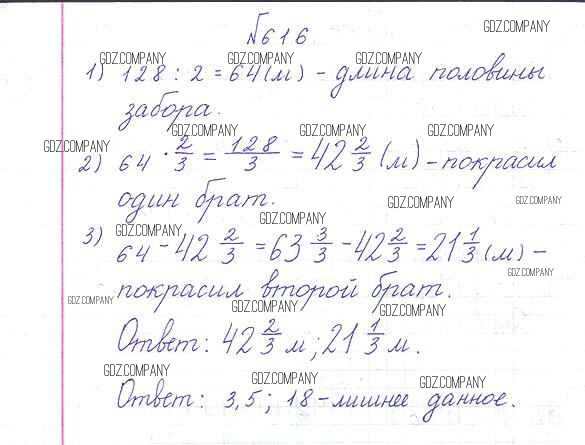 №616.
GDZ.COMPANY
GDZ.COMPANY GDZ.COMPANY GDZ.COMPANY
1) 128 : 2 = 64 (м) - длина половины
забора.
GDZ.COMPANY GDZ.COMPANY GDZ.COMPANY
GDZ.COMPANY
2) 64 · 2/3 = 128/3 = 42 2/3 (м) - покрасил
один брат.
GDZ.COMPANY GDZ.COMPANY
GDZ.COMPANY GDZ.COMPANY
3) 64 - 42 2/3 = 63 3/3 - 42 2/3 = 21 1/3 (м) -
GDZ.COMPANY
покрасил второй брат.
GDZ.COMPANY
GDZ.COMPANY GDZ.COMPANY
Ответ: 42 2/3 м; 21 1/3 м.
GDZ.COMPANY GDZ.COMPANY GDZ.COMPANY
Ответ: 3,5; 18 - лишнее данное.